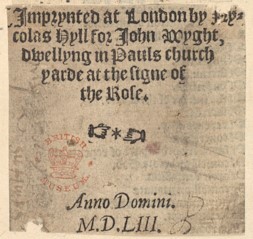 Imprynted at London by Ny-
colas Hyll for John Wyght,
dwellyng in Pauls church
yarde at the signe of
the Rose.
BRITISH
MUSEUM
Anno Domini.
M.D.LIII.